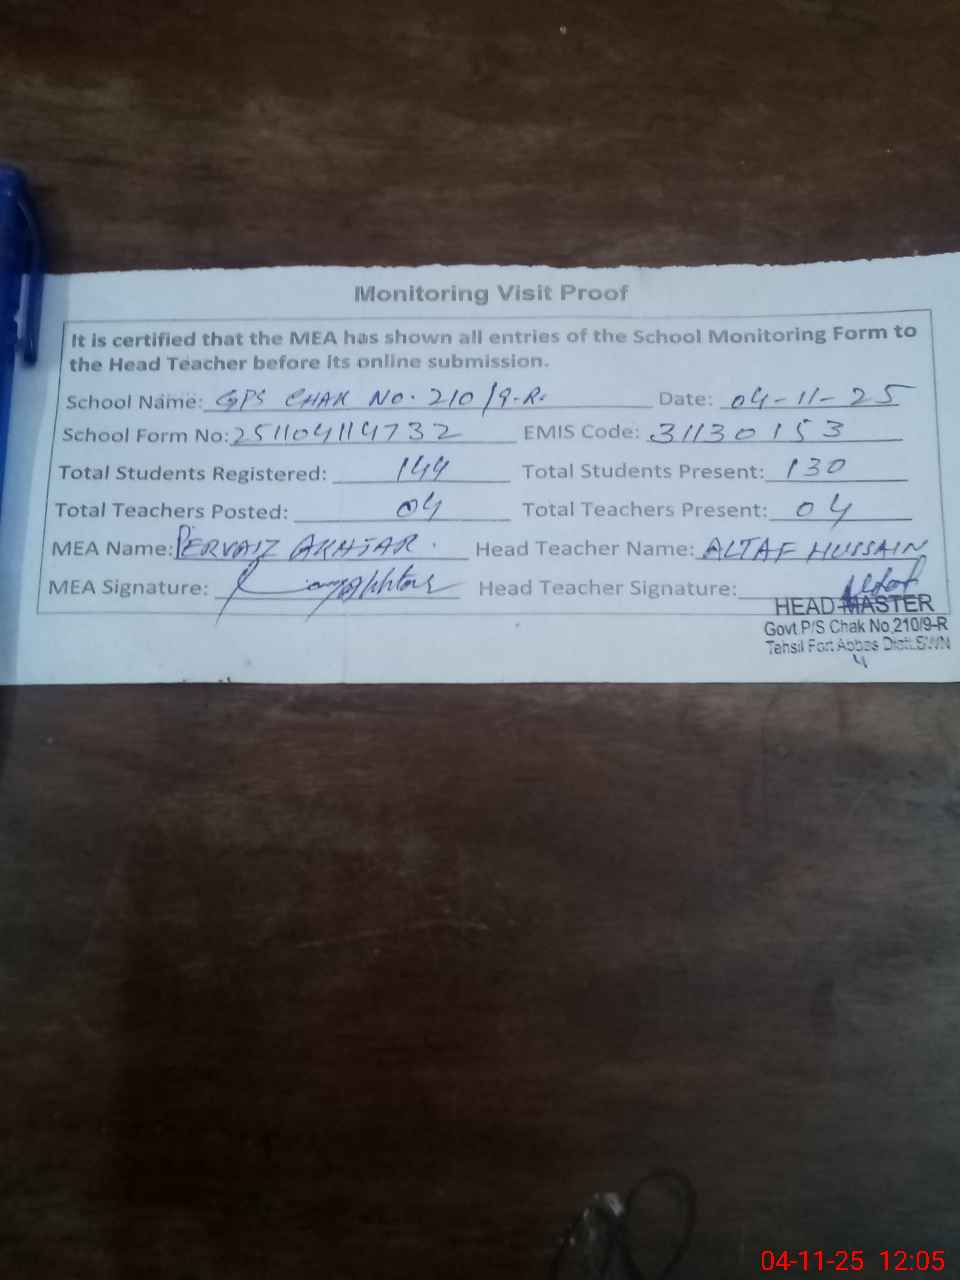 Monitoring Visit Proof
It is certified that the MEA has shown all entries of the School Monitoring Form to
the Head Teacher before its online submission.
School Name: GPS CHAK NO. 210/9-R. Date: 04-11-25
School Form No: 251104114732 EMIS Code: 31130153
Total Students Registered: 144 Total Students Present: 130
Total Teachers Posted: 04 Total Teachers Present: 04
MEA Name: PERVAIZ AKHTAR. Head Teacher Name: ALTAF HUSSAIN
MEA Signature: Head Teacher Signature:
HEAD MASTER
Govt.P/S Chak No.210/9-R
Tehsil Fort Abbas Distt.BWN
04-11-25 12:05